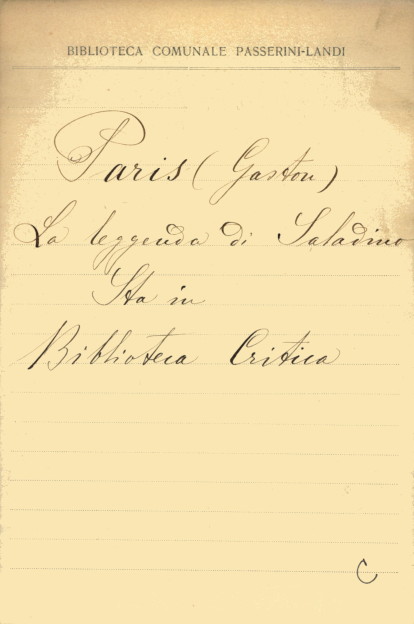 BIBLIOTECA COMUNALE PASSERINI-LANDI
Paris (Gaston)
La leggenda di Saladino
Sta in
Biblioteca Critica
C